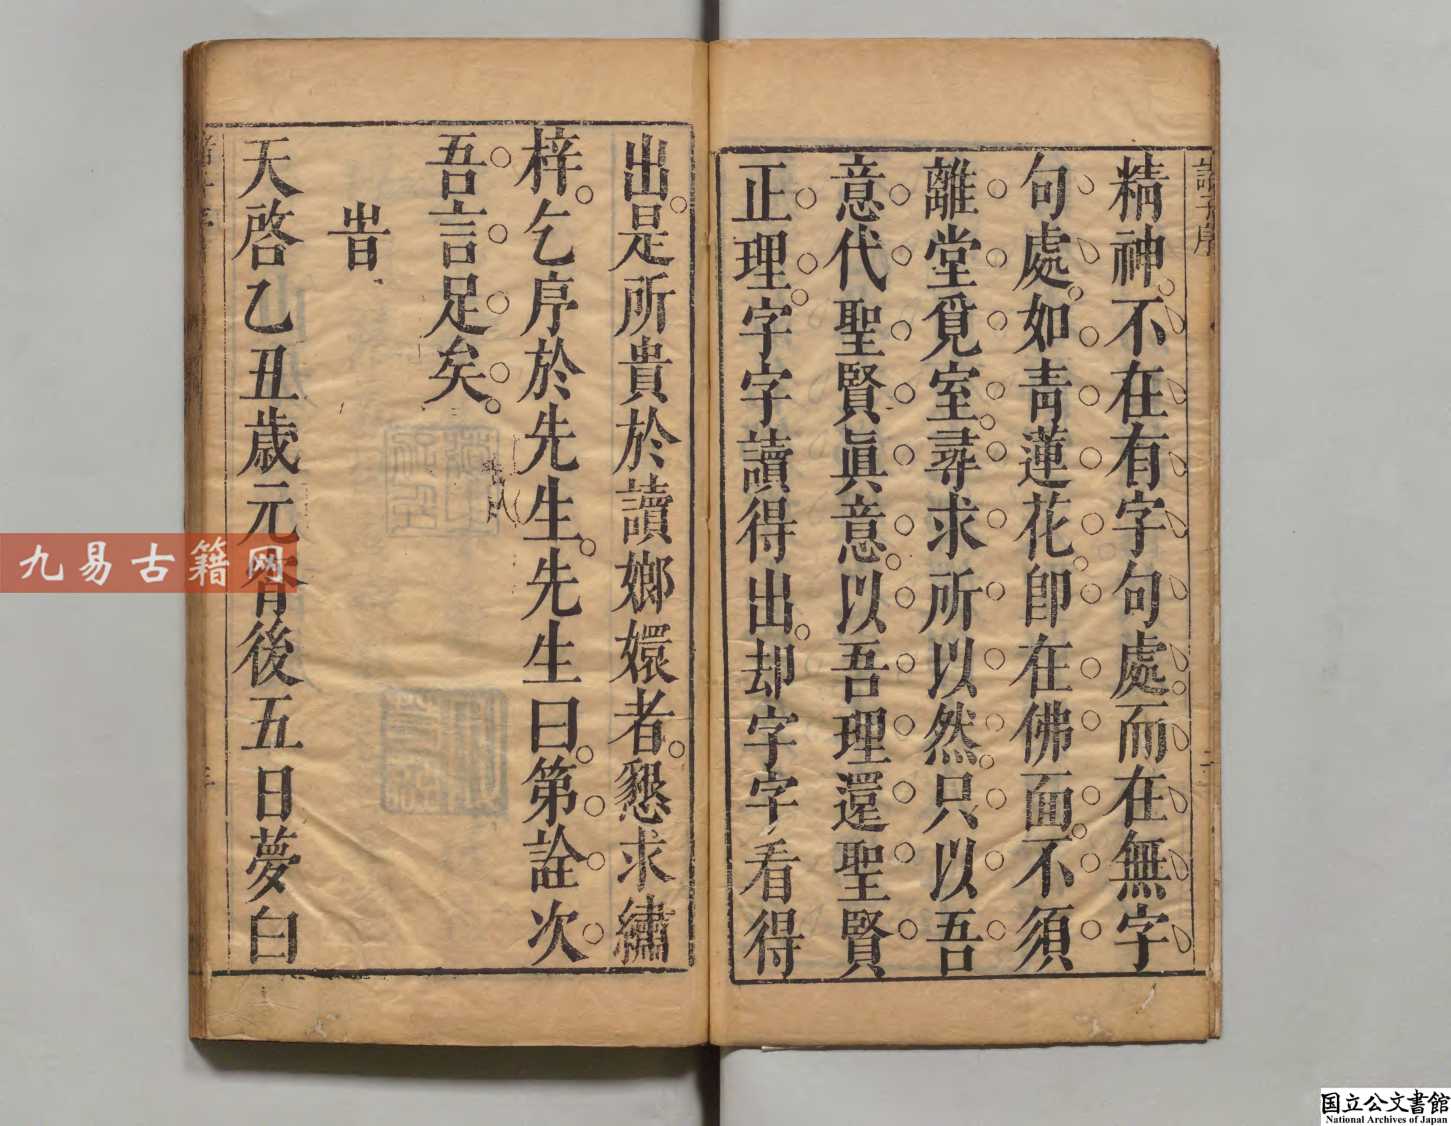 精神不在有字句處而在無字
句處如青蓮花卽在佛面不須
離堂覓室尋求所以然只以吾
意代聖賢眞意以吾理還聖賢
正理字字讀得出却字字看得
出是所貴於讀嫏嬛者懇求繡
梓乞序於先生先生曰第詮次
吾言足矣
旹
天啓乙丑歲元宵後五日夢白
九易古籍网
国立公文書館
National Archives of Japan